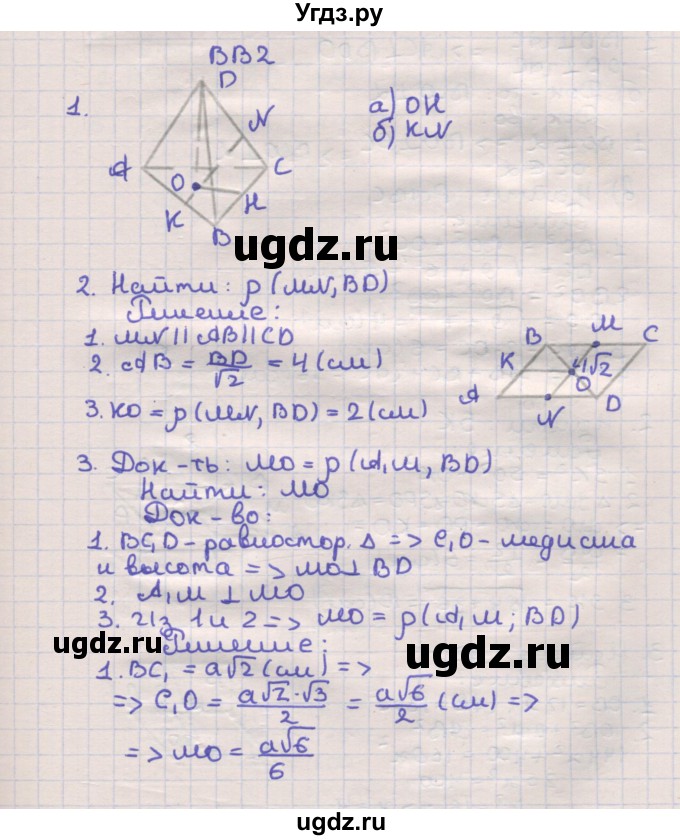 Угдз.ру
ВВ2
1.
D
N
A
C
O
H
K
B
а) OH
б) KN
ugdz.ru
2. Найти: ρ(MN, BD)
Решение:
1. MN || AB || CD
2. AB = BD/√2 = 4 (см)
3. KO = ρ(MN, BD) = 2 (см)
B
M
C
K
4√2
O
A
N
D
3. Док-ть: MO = ρ(A₁M, BD)
Найти: MO
Док-во:
1. BC₁D - равностор. Δ => C₁O - медиана
и высота => MO ⊥ BD
2. A₁M ⊥ MO
3. Из 1 и 2 => MO = ρ(A₁M; BD)
ugdz.ru
Решение:
ugdz.ru
1. BC₁ = a√2 (см) =>
=> C₁O = a√2·√3/2 = a√6/2 (см) =>
=> MO = a√6/6
ugdz.ru